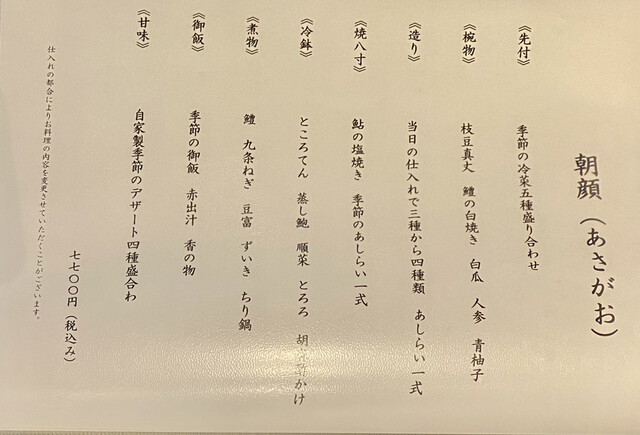 朝顔（あさがお）
《先付》 季節の冷菜五種盛り合わせ
《椀物》 枝豆真丈 鱧の白焼き 白瓜 人参 青柚子
《造り》 当日の仕入れで三種から四種類 あしらい一式
《焼八寸》 鮎の塩焼き 季節のあしらい一式
《冷鉢》 ところてん 蒸し鮑 順菜 とろろ 胡 かけ
《煮物》 鱧 九条ねぎ 豆富 ずいき ちり鍋
《御飯》 季節の御飯 赤出汁 香の物
《甘味》 自家製季節のデザート四種盛合わ
七七〇〇円（税込み）
仕入れの都合によりお料理の内容を変更させていただくことがございます。